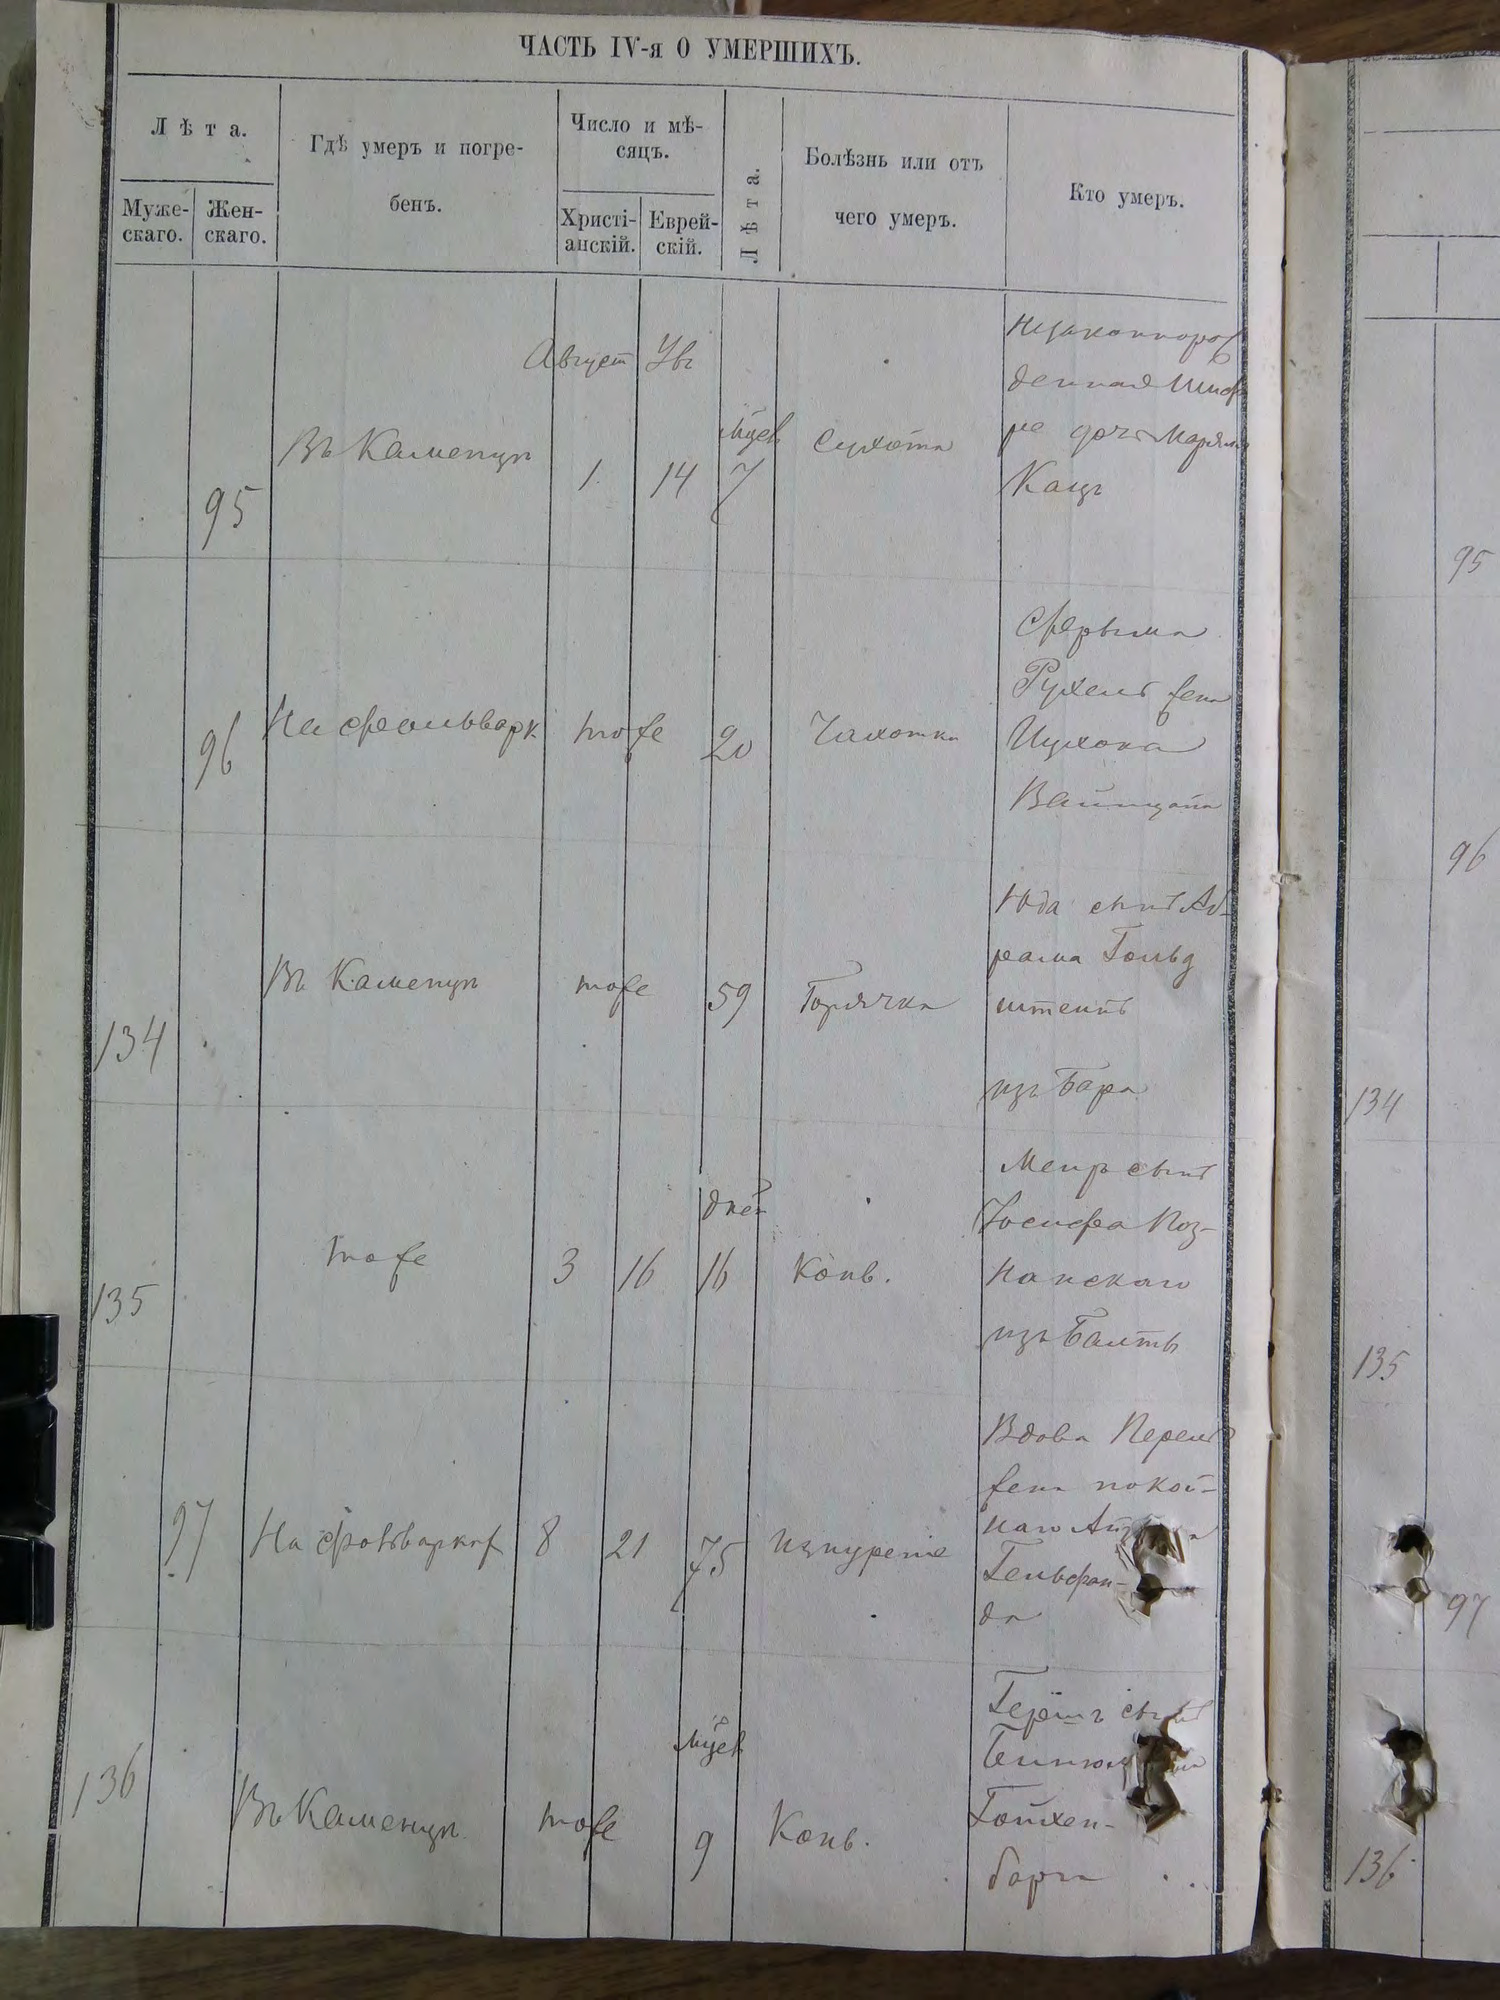 ЧАСТЬ IV-я О УМЕРШИХЪ.
Лѣта.
Муже-
скаго.
Жен-
скаго.
Гдѣ умеръ и погре-
бенъ.
Число и мѣ-
сяцъ.
Христі-
анскій.
Еврей-
скій.
Лѣта.
Болѣзнь или отъ
чего умеръ.
Кто умеръ.
Август
95
Въ Каменцѣ
1
14
Мцев
7
Сухота
Незаконнорож
денная
дочь Марьямъ
Кацъ
96
На фольварк
тоже
20
Чахотка
Рухель жена
Ицхока
134
Въ Каменцѣ
тоже
59
Горячка
Юда сынъ Аб-
рама Гольд
штейнъ
изъ Бара
135
тоже
3
16
дней
16
Конв.
Меиръ сынъ
Иосифа Поз-
нанскаго
изъ Балты
97
На фольваркѣ
8
21
75
Изнуреніе
Вдова Перель
жена покой-
наго
Гельфан-
да
136
Въ Каменцѣ
тоже
Мцев
9
Конв.
Гершъ сынъ
Гойхен-
барга
95
96
134
135
97
136